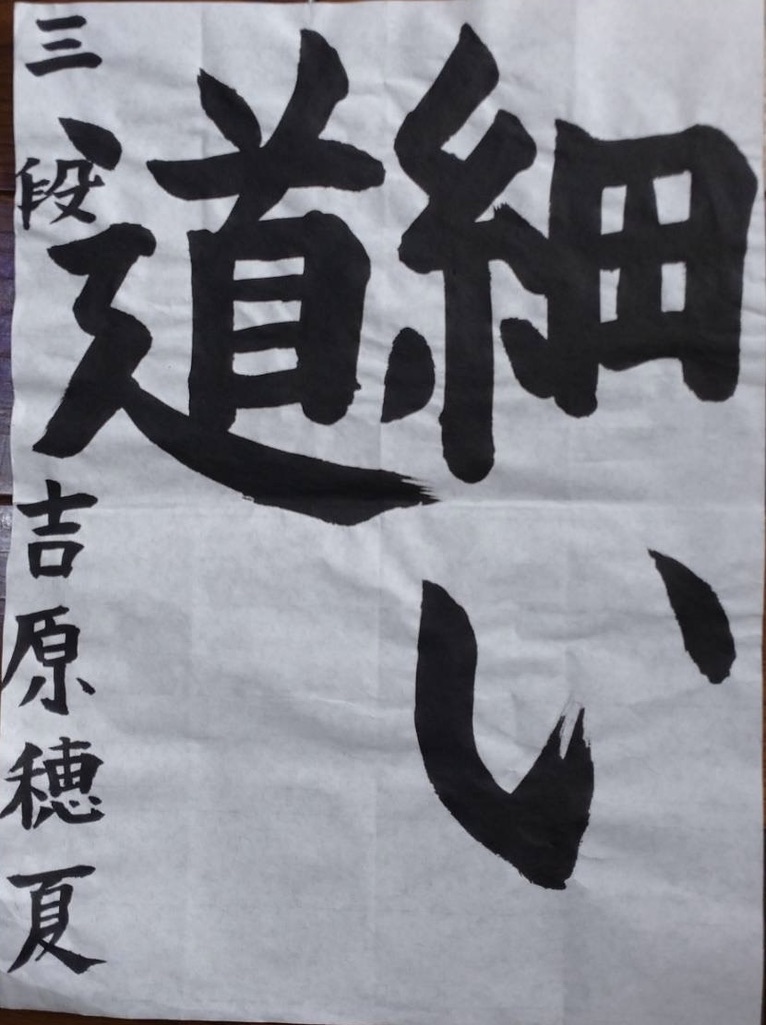 細い
道
三段 吉原穂夏